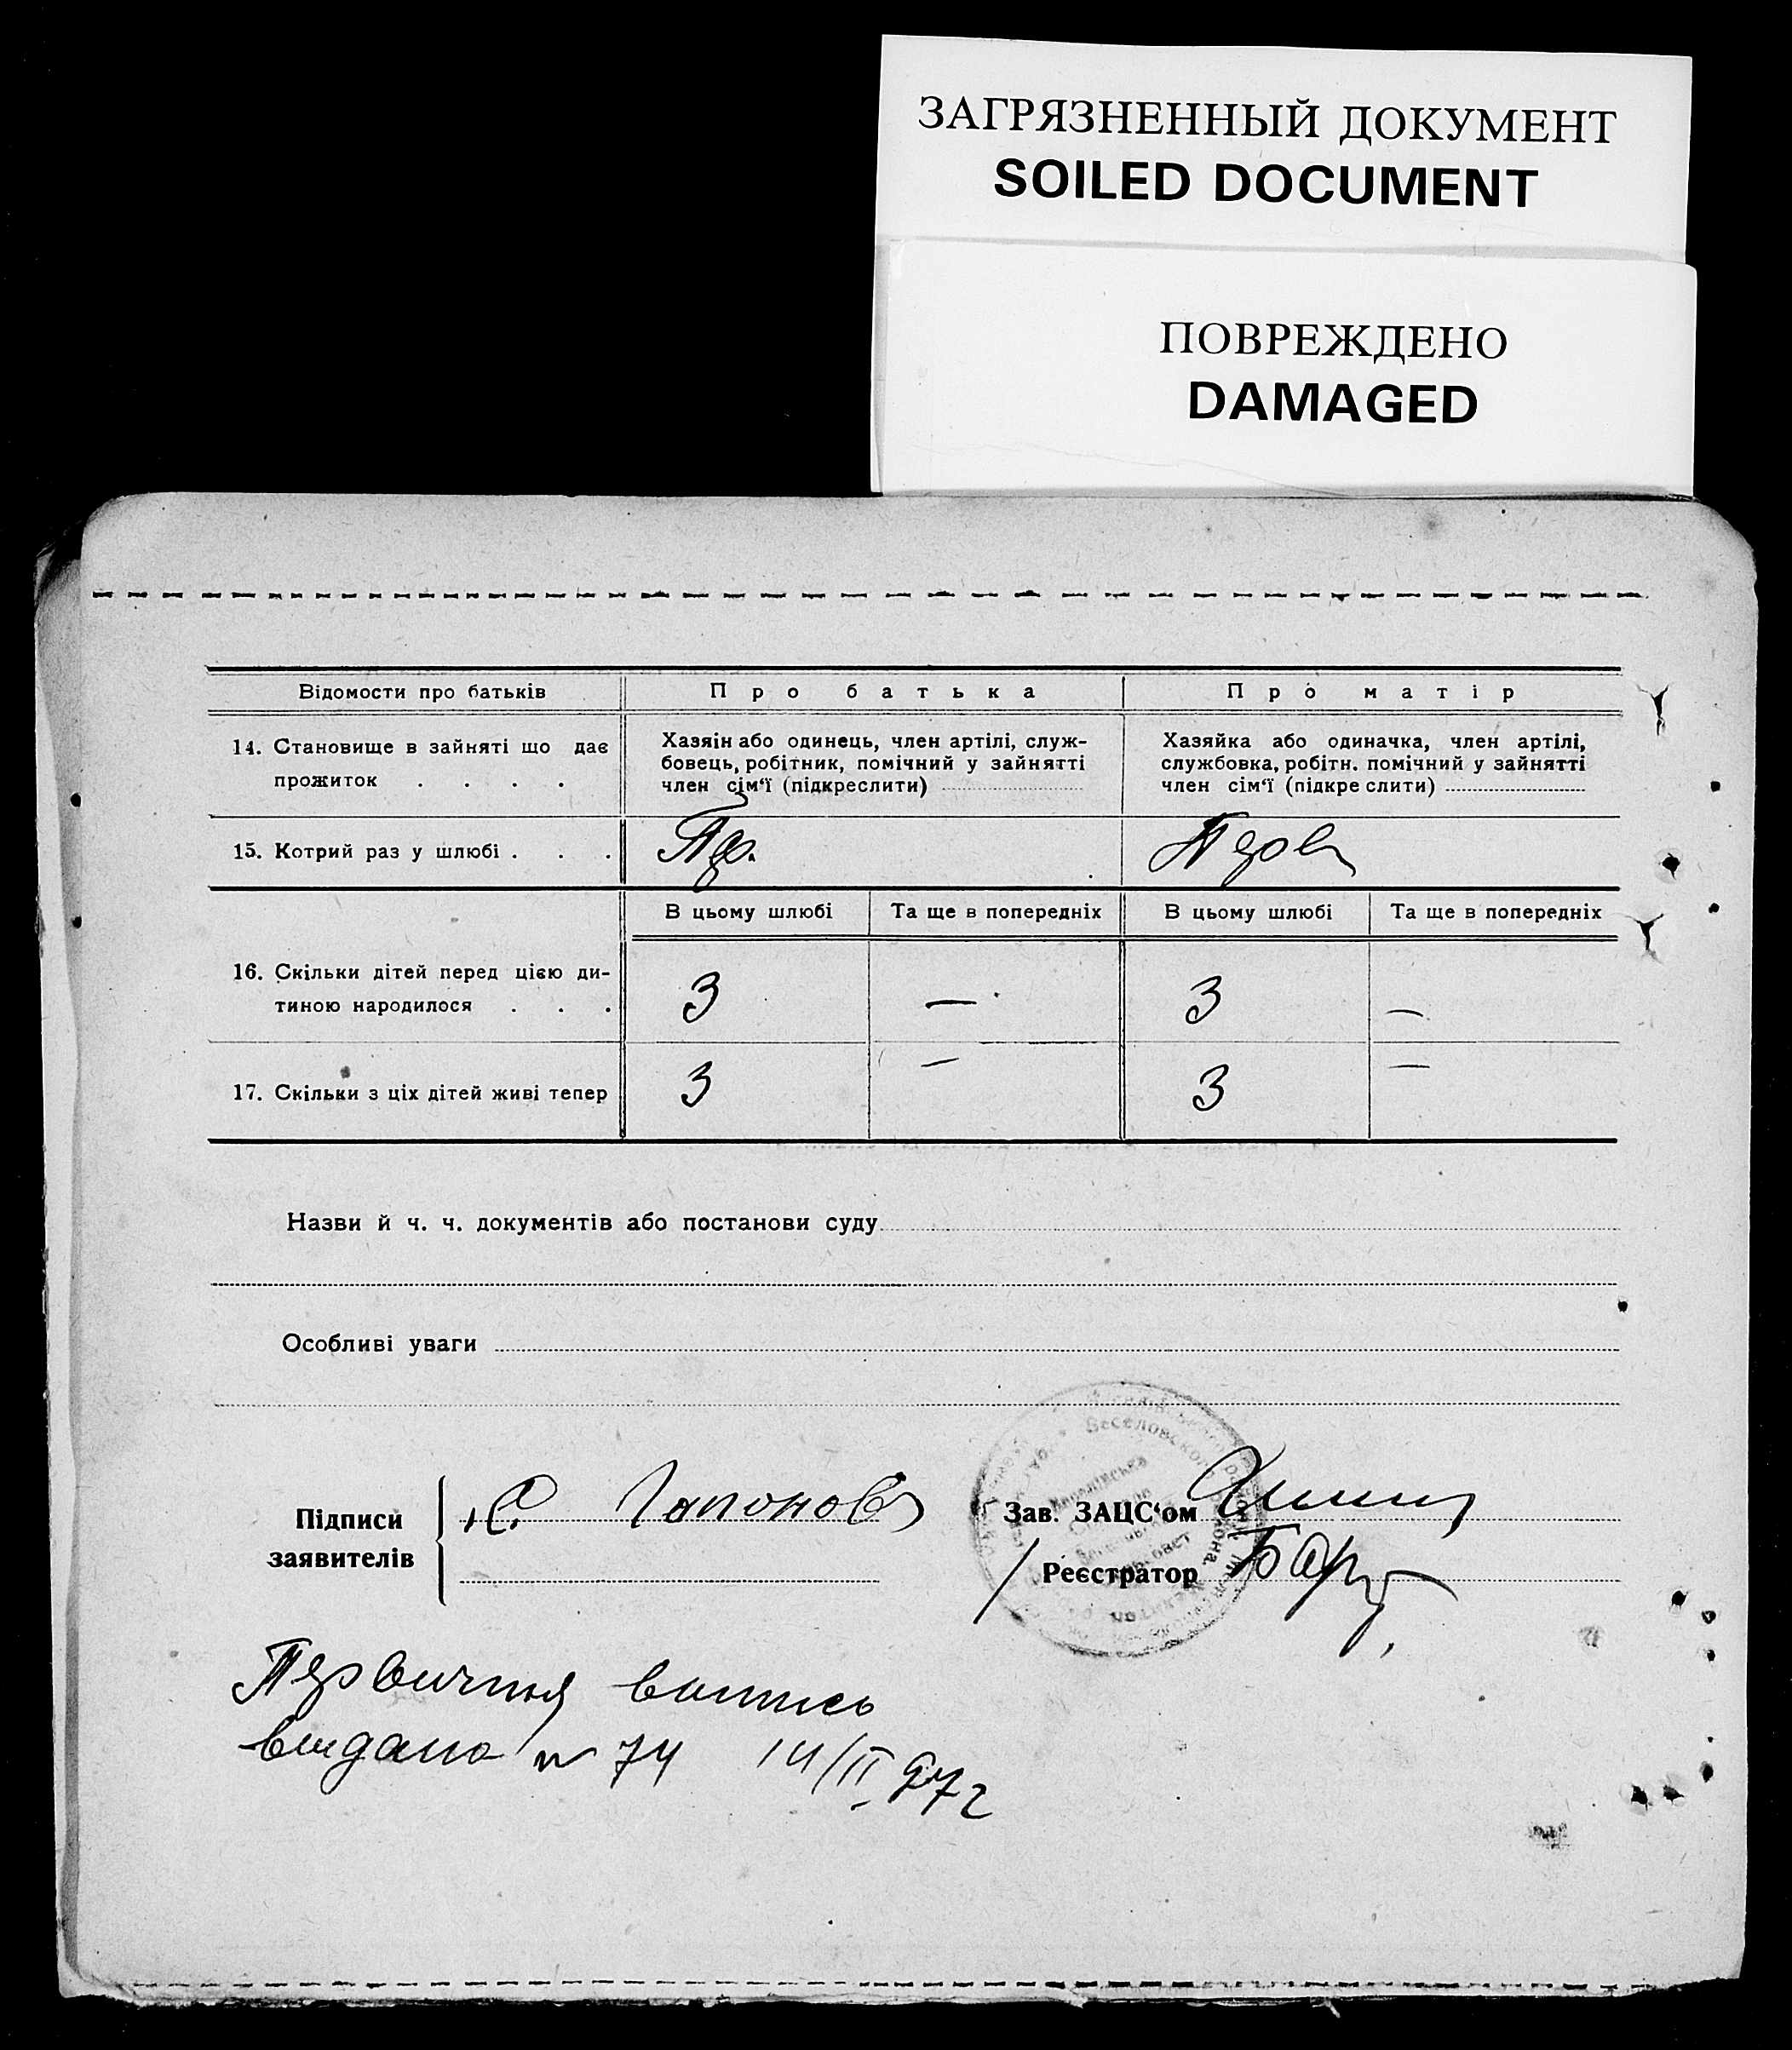 ЗАГРЯЗНЕННЫЙ ДОКУМЕНТ
SOILED DOCUMENT
ПОВРЕЖДЕНО
DAMAGED
Відомости про батьків
Про батька
Про матір
14. Становище в зайняті що дає
прожиток . . . .
Хазяін або одинець, член артілі, служ-
бовець, робітник, помічний у зайнятті
член сім‘ї (підкреслити)
Хазяйка або одиначка, член артілі,
службовка, робітн. помічний у зайнятті
член сім‘ї (підкре слити)
15. Котрий раз у шлюбі . . .
Пер.
Перв
В цьому шлюбі
Та ще в попередніх
В цьому шлюбі
Та ще в попередніх
16. Скільки дітей перед цією ди-
тиною народилося . . .
3 — 3 —
17. Скільки з ціх дітей живі тепер
3 — 3 —
Назви й ч. ч. документів або постанови суду
Особливі уваги
Підписи
заявителів
Гапонов
Зав. ЗАЦС‘ом
Реєстратор
Веселовского
Первичная
видано № 74 14/II 97 г